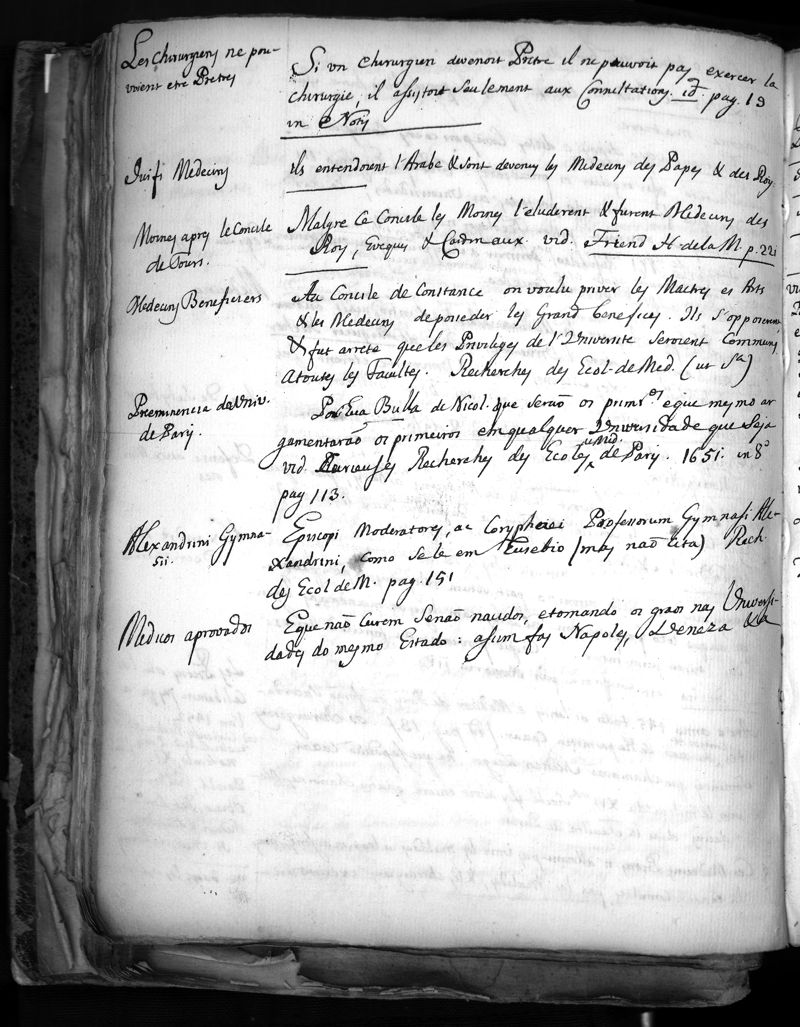 Les Chirurgiens ne pou-
voient etre Pretres
Si un Chirurgien devenoit Prêtre il ne pouvoit pas exercer la
Chirurgie, il assistoit seulement aux Consultations. id. pag. 19
in Notis
Juifs Medecins
ils entendoient l'Arabe & sont devenus les Medecins des Papes & des Roy
Moines apres le Concile
de Tours.
Malgre Ce Concile les Moines l'eluderent & furent Medecins des
Roys, Eveques & Cardinaux. vid. Friend H. de la M. p. 221
Medecins Beneficiers
Au Concile de Constance on voulu priver les Maitres es Arts
& les Medecins de posseder les Grand Benefices. Ils s'opposerent
& fut arreté que les Privileges de l'Université seroient Communs
a toutes les Facultes. Recherches des Ecol. de Med. (ut sa)
Preeminencia da Univ.
de Paris.
Por Eua Bulla de Nicol. que serão os primros e que mesmo ar
gumentarão os primeiros em qualquer Universidade que seja
vid. Curieuses Recherches des Ecoles Med. de Paris. 1651. in 8º
pag 113.
Alexandrini Gymna-
sii.
Episcopi Moderatores, ac Coryphaei Professorum Gymnasi Ale-
xandrini, como se le em Eusebio (mas não cita) Rech.
des Ecol de M. pag. 151
Medicos aprovados
E que não curem senão nacidos, e tomando os graos nas Universi-
dades do mesmo Estado: assim fas Napoles, Veneza &a